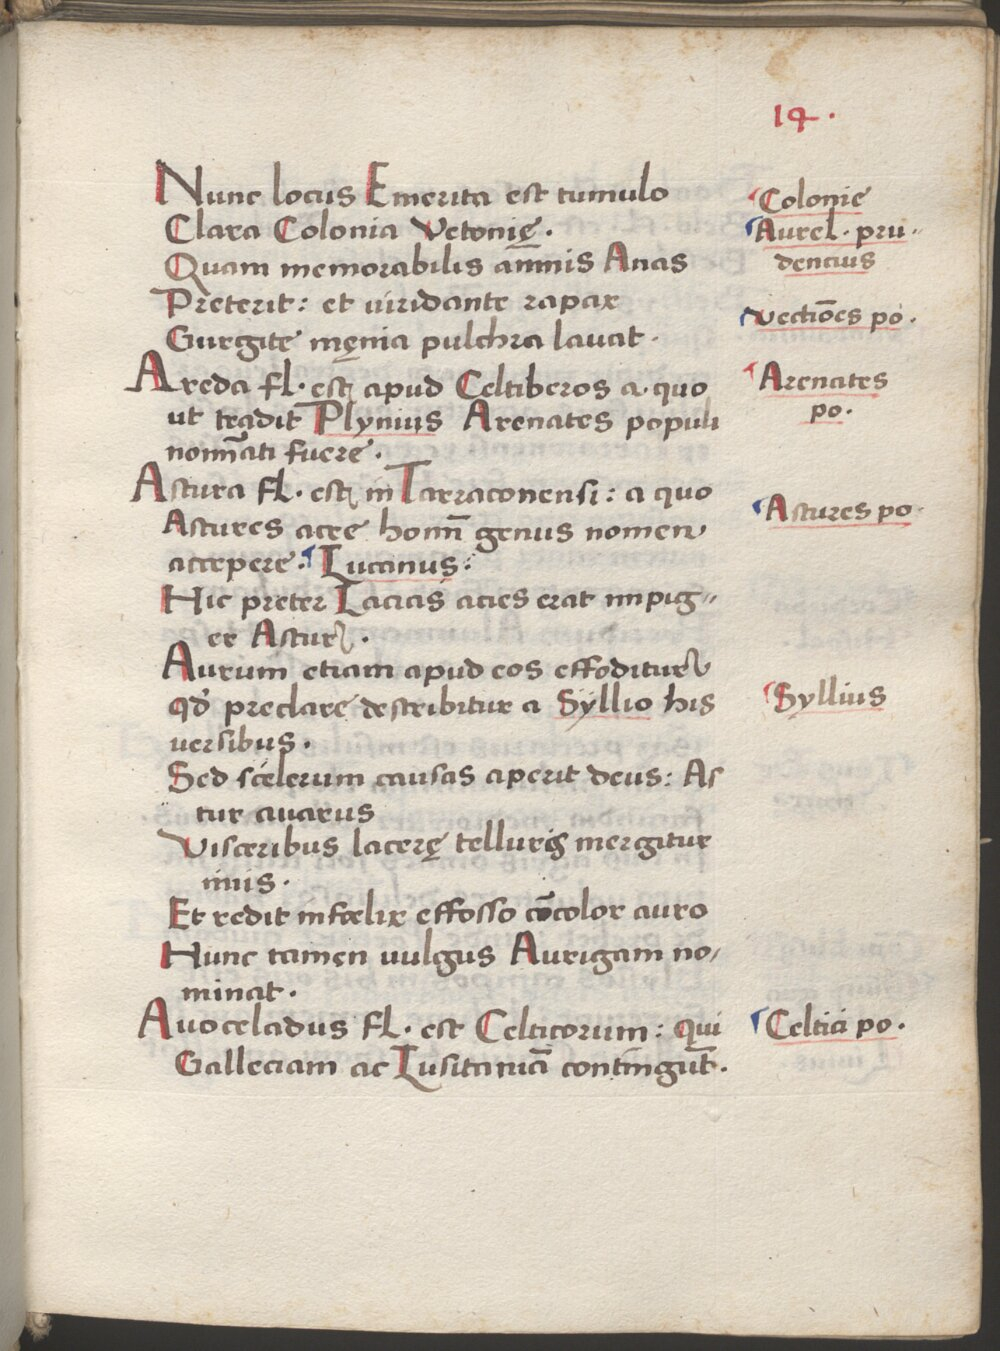 14.
Nunc locus Emerita est tumulo
Clara Colonia Vetonię.
Quam memorabilis am̄nis Anas
Preterit: et uiridante rapax
Gurgite męnia pulchra lauat.
Areda fl. est apud Celtiberos a quo
ut tradit Plynius Arenates populi
nom̄ati fuere.
Astura fL. est in Tarraconensi: a quo
Astures acre homī genus nomen
accepere. Lucanus:
Hic preter Lacicas acies erat impig„
er Astur.
Aurum etiam apud eos effoditur
qđ preclare describitur a Syllio his
uersibus.
Sed scelerum causas aperit deus: As
tur auarus
Visceribus lacerę telluris mergitur
imis.
Et redit infœlix effosso cōcolor auro
Hunc tamen uulgus Aurigam no,
minat.
Auoceladus fL. est Celticorum: qui
Galleciam ac Lusitaniā contingūt.
Colonie
Aurel. pru„
dencius
Vectiōes po.
Arenates
po.
Astures po.
Syllius
Celtici po.